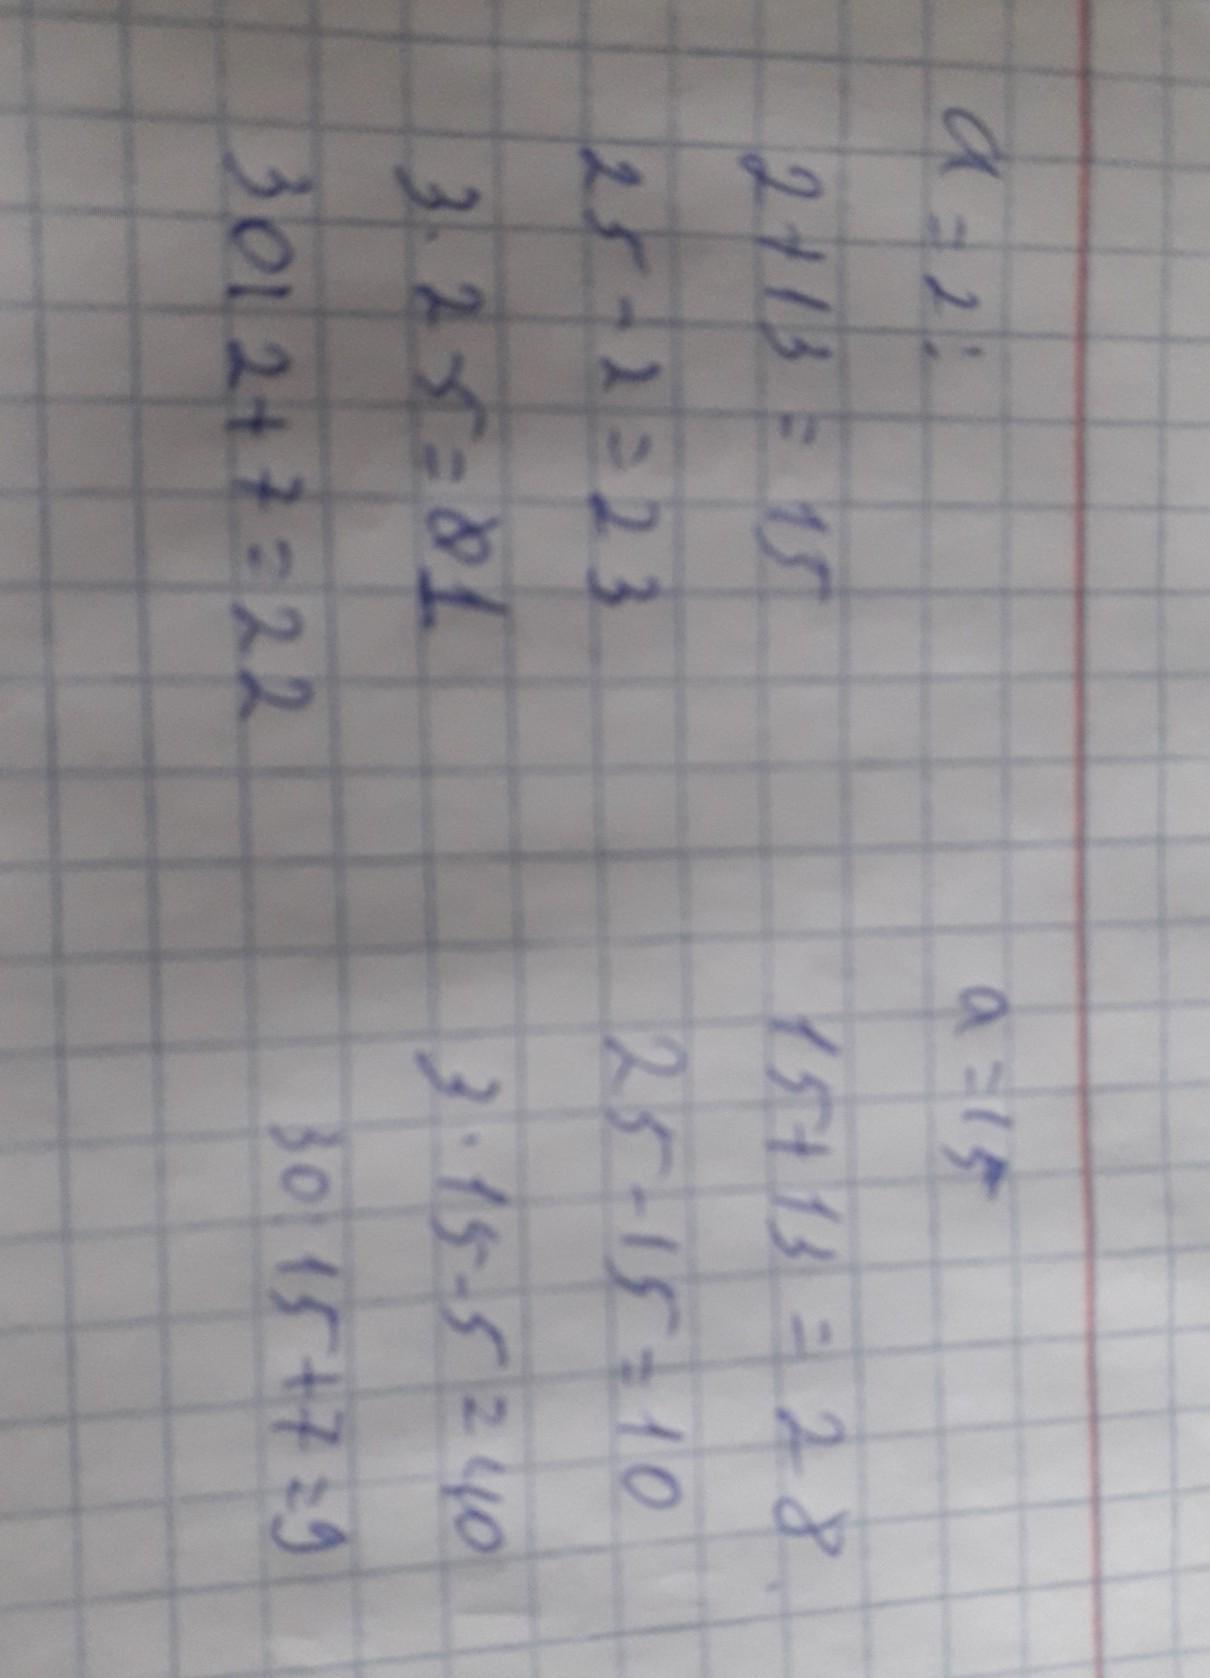 a = 2:
2+13 = 15
25 - 2 = 23
3 · 25 = 81
30 : 2 + 7 = 22
a = 15
15 + 13 = 28
25 - 15 = 10
3 · 15 - 5 = 40
30 : 15 + 7 = 9